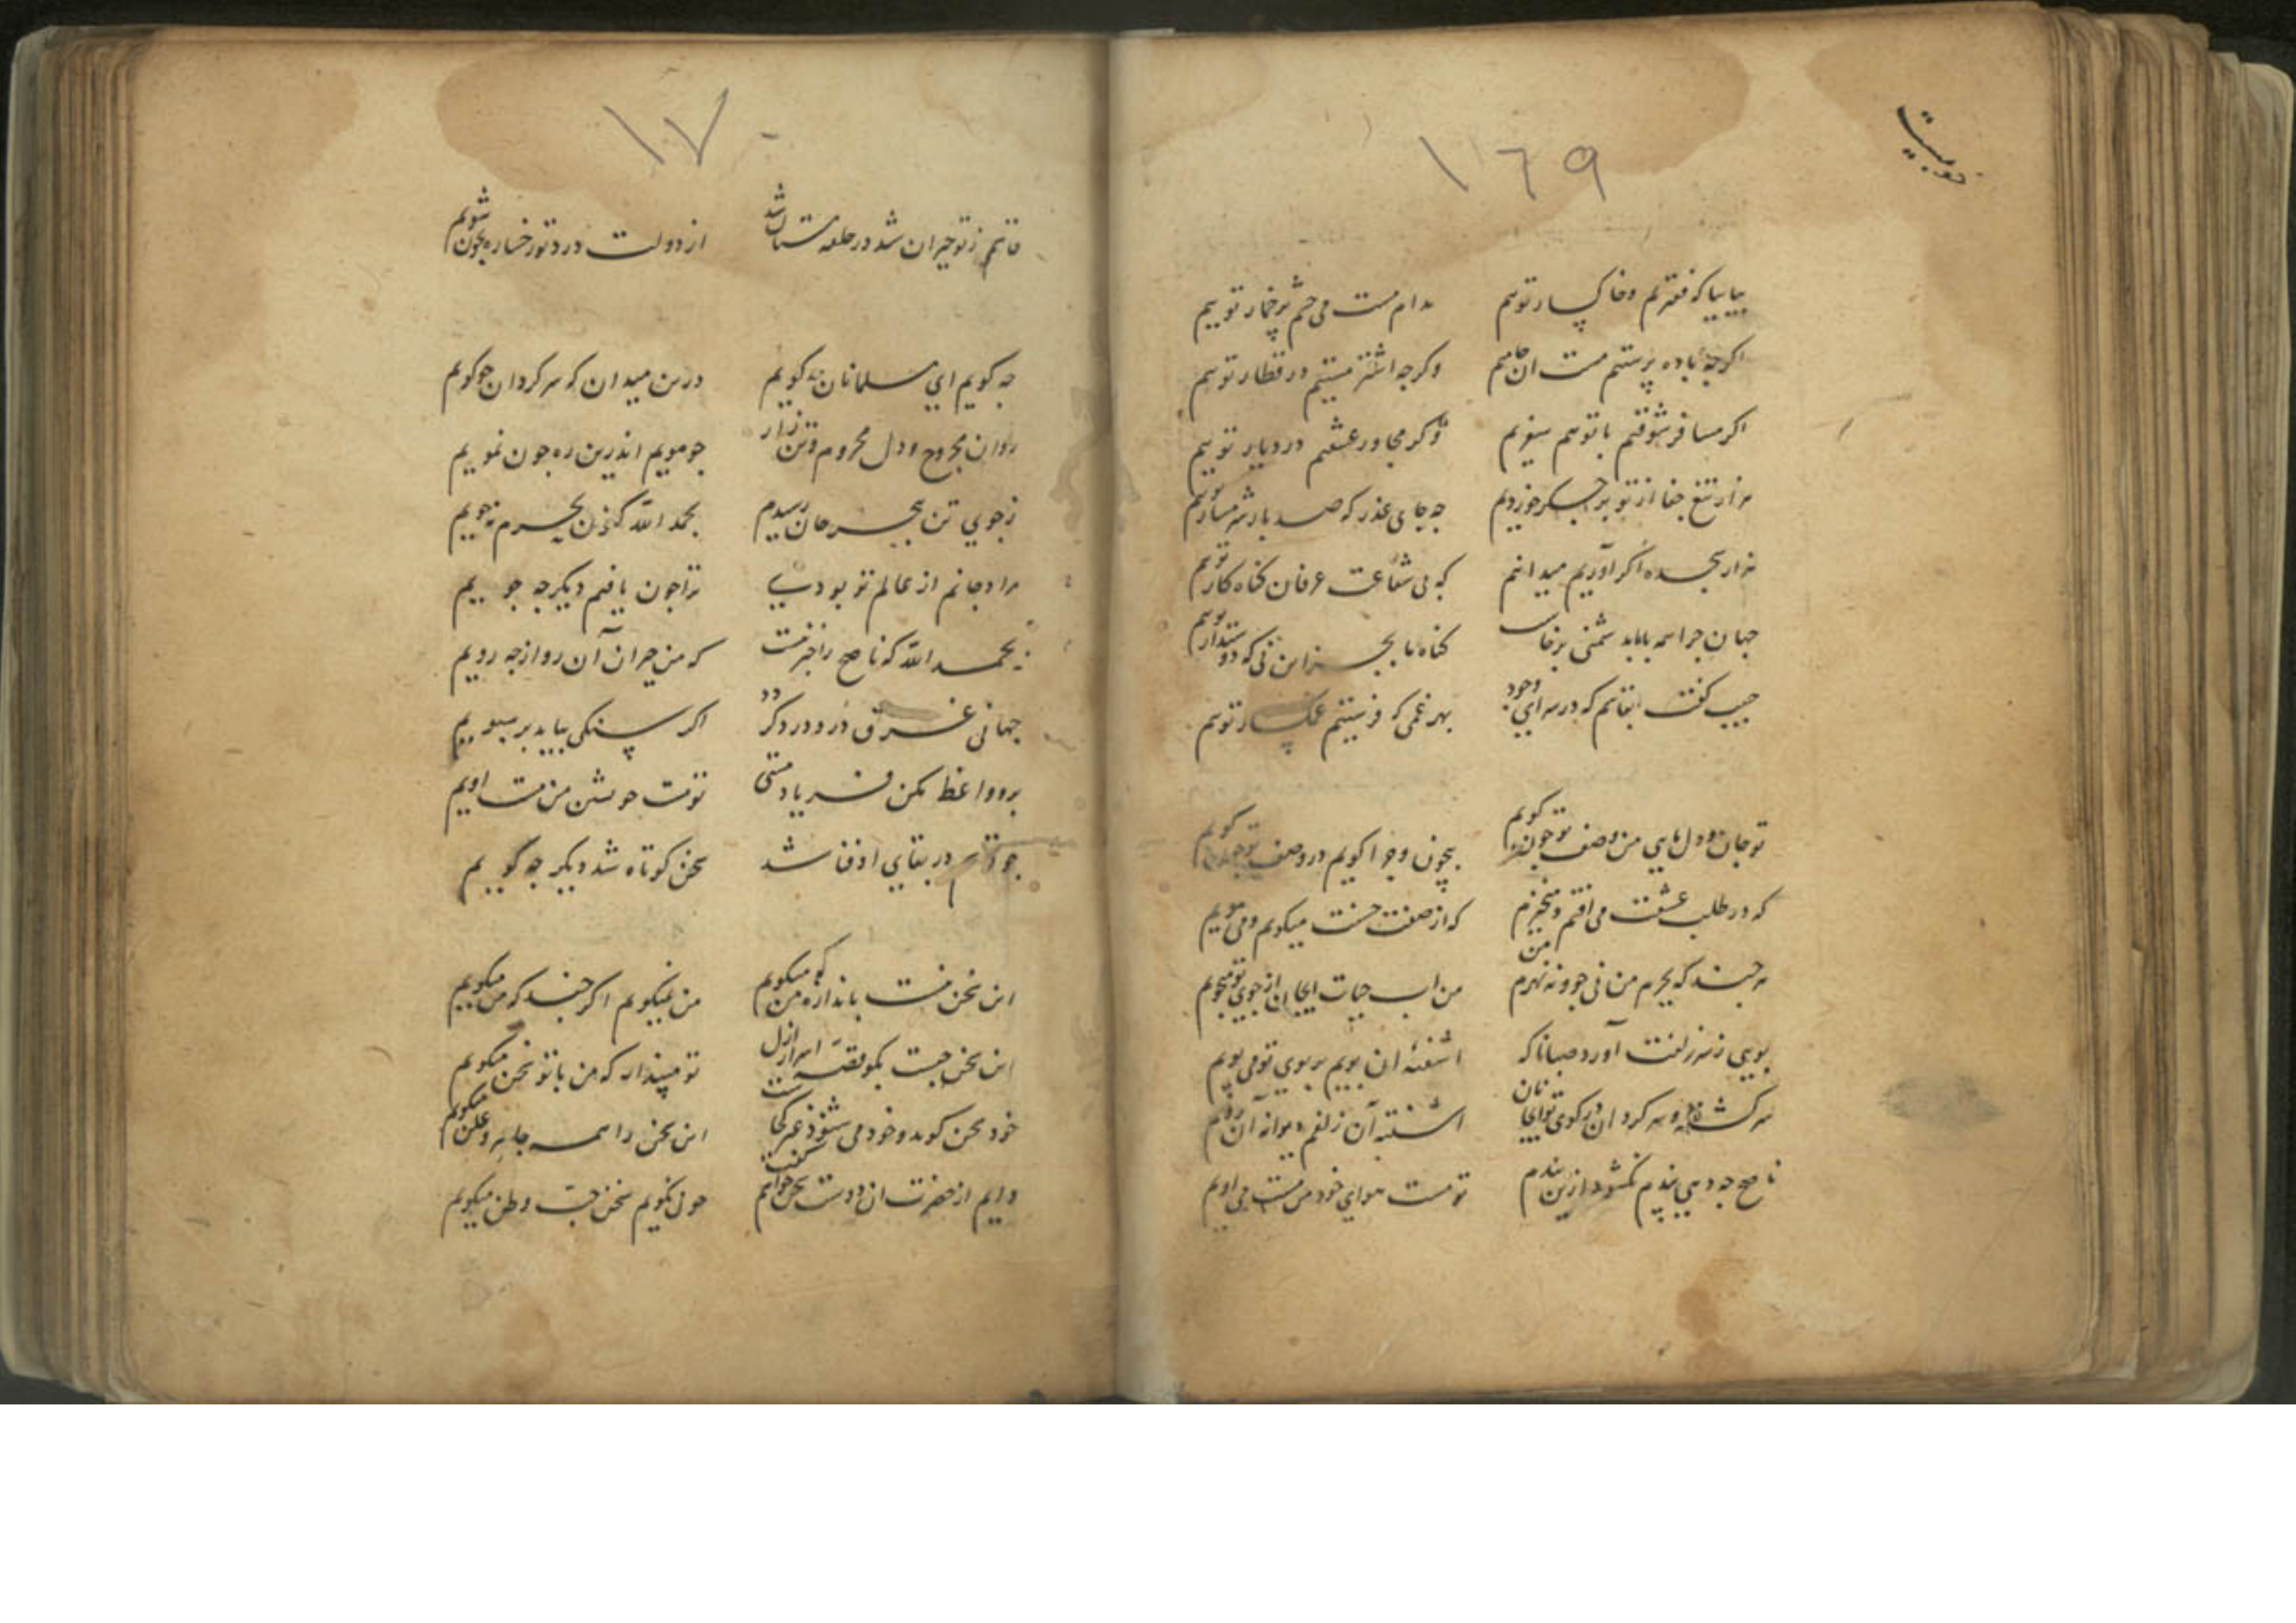 ۱۶۹
بیا بیا که فقیریم و خاکسار توییم
مدام مست می چشم پرخمار توییم
اکرچه باده پرستیم مست ان جامیم
وکرچه اشتر مستیم در قطار توییم
اکر مسافر شوقیم با توییم
وکر مجاور عشقیم در دیار توییم
هزار تیغ جفا از تو بر جکر خوردیم
چه جای عذر که صد بار شرمسار توییم
هزار سجده اکر آوریم میدانم
که بی شفاعت عرفان کناه کار توییم
جهان چرا همه با ما بدشمنی برخاست
کناه ما بجز این نی که دوستدار توییم
حبیب کفت بقاسم که در سرای وجود
بهر غمی که فرستیم غمکسار توییم
تو جان و دل مایی من وصف تو چون کویم
بیچون و چرا کویم در وصف تو چون کویم
که در طلب عشقت می افتم و میخیزم
که از صفت حسنت میکویم و می مویم
هر چند که بحرم من نی جو و نه نهرم من
من اب حیات ای جان از جوی تو میجویم
بویی ز سر زلفت آورد صبا ناکه
اشفته ان بویم بر بوی تو می پویم
سرکشته و سرکردان در کوی تو ای جانان
اشفته آن زلفم دیوانه آن رویم
ناصح چه دهی پندم نکشود ازین بندم
تو مست هوای خود من مست می اویم
۱۷۰
قاسم ز تو حیران شد در حلقه مستان شد
از دولت درد تو رخساره بخون شویم
چه کویم ای مسلمانان چه کویم
درین میدان که سرکردان چو کویم
روان مجروح و دل محروم و تن زار
چو مویم اندرین ره چون نمویم
ز جوی تن ببحر جان رسیدم
بحمد الله کنون بحرم نه جویم
مراد جانم از عالم تو بودی
ترا چون یافتم دیکر چه جویم
بحمد الله که ناصح را خبر نیست
که من حیران آن رو از چه رویم
جهانی غرق درد و درد کردد
اکر سنکی بیاید بر سبویم
برو واعظ مکن فریاد مستی
تو مست خویشتن من مست اویم
چو قاسم در بقای او فنا شد
سخن کوتاه شد دیکر چه کویم
این سخن نیست باندازه من که میکویم
من نمیکویم اکر چند که من میکویم
این سخن چیست بکو قصه اسرار ازل
تو مپندار که من با تو سخن میکویم
خود سخن کوید و خود می شنود غیر کجاست
این سخن را همه جا سر و علن میکویم
دایم از حضرت ان دوست سخن خواهم کفت
چون نکویم سخن حب وطن میکویم